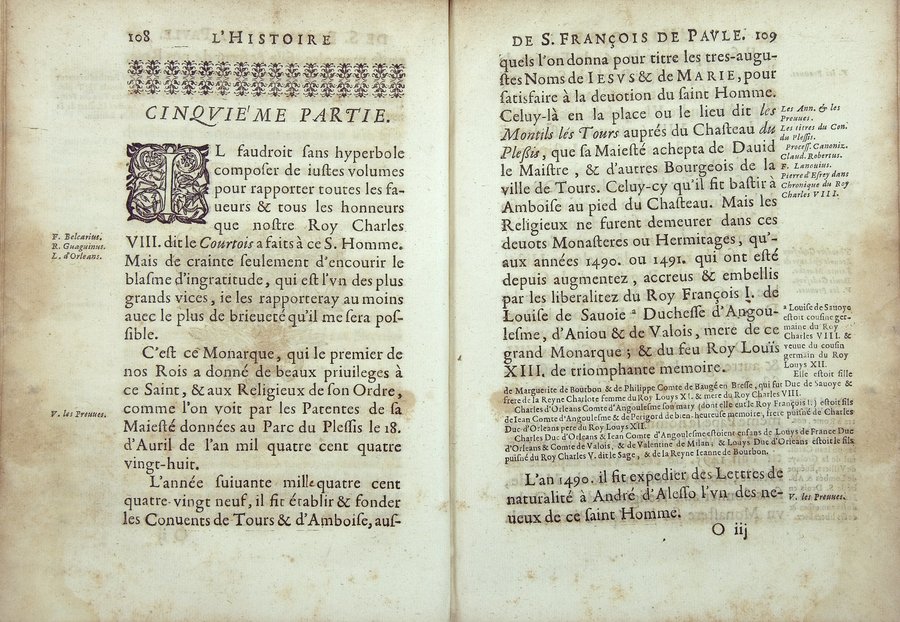 108 L'HISTOIRE
CINQVIE'ME PARTIE.
IL faudroit sans hyperbole
composer de iustes volumes
pour rapporter toutes les fa-
ueurs & tous les honneurs
que nostre Roy Charles
VIII. dit le Courtois a faits à ce S. Homme.
Mais de crainte seulement d'encourir le
blasme d'ingratitude, qui est l'vn des plus
grands vices, ie les rapporteray au moins
auec le plus de brieueté qu'il me sera pos-
sible.
F. Belcarius.
R. Guaguinus.
L. d'Orleans.
C'est ce Monarque, qui le premier de
nos Rois a donné de beaux priuileges à
ce Saint, & aux Religieux de son Ordre,
comme l'on voit par les Patentes de sa
Maiesté données au Parc du Plessis le 18.
d'Auril de l'an mil quatre cent quatre
vingt-huit.
V. les Preuues.
L'année suiuante mille quatre cent
quatre vingt neuf, il fit établir & fonder
les Conuents de Tours & d'Amboise, aus-
DE S. FRANÇOIS DE PAVLE. 109
quels l'on donna pour titre les tres-augu-
stes Noms de IESVS & de MARIE, pour
satisfaire à la deuotion du saint Homme.
Celuy-là en la place ou le lieu dit les
Montils lés Tours auprés du Chasteau du
Plessis, que sa Maiesté achepta de Dauid
le Maistre, & d'autres Bourgeois de la
ville de Tours. Celuy-cy qu'il fit bastir à
Amboise au pied du Chasteau. Mais les
Religieux ne furent demeurer dans ces
deuots Monasteres ou Hermitages, qu'-
aux années 1490. ou 1491. qui ont esté
depuis augmentez, accreus & embellis
par les liberalitez du Roy François I. de
Louise de Sauoie a Duchesse d'Angou-
lesme, d'Aniou & de Valois, mere de ce
grand Monarque; & du feu Roy Louïs
XIII. de triomphante memoire.
Les Ann. & les
Preuues.
Les titres du Con.
du Plessis.
Process. Canoniz.
Claud. Robertus.
F. Lanouius.
Pierre d'Esrey dans
Chronique du Roy
Charles VIII.
a Louise de Sauoye
estoit cousine ger-
maine du Roy
Charles VIII. &
veuue du cousin
germain du Roy
Louys XII.
Elle estoit fille
de Marguerite de Bourbon & de Philippe Comte de Baugé en Bresse, qui fut Duc de Sauoye &
frere de la Reyne Charlote femme du Roy Louys XI. & mere du Roy Charles VIII.
Charles d'Orleans Comte d'Angoulesme son mary (dont elle eut le Roy François I.) estoit fils
de Iean Comte d'Angoulesme & de Perigord de bien-heureuse memoire, frere puisné de Charles
Duc d'Orleans pere du Roy Louys XII.
Charles Duc d'Orleans & Iean Comte d'Angoulesme estoient enfans de Louys de France Duc
d'Orleans & Comte de Valois, & de Valentine de Milan; & Louys Duc d'Orleans estoit le fils
puisné du Roy Charles V. dit le Sage, & de la Reyne Ieanne de Bourbon.
L'an 1490. il fit expedier des Lettres de
naturalité à André d'Alesso l'vn des ne-
ueux de ce saint Homme.
V. les Preuues.
O iij